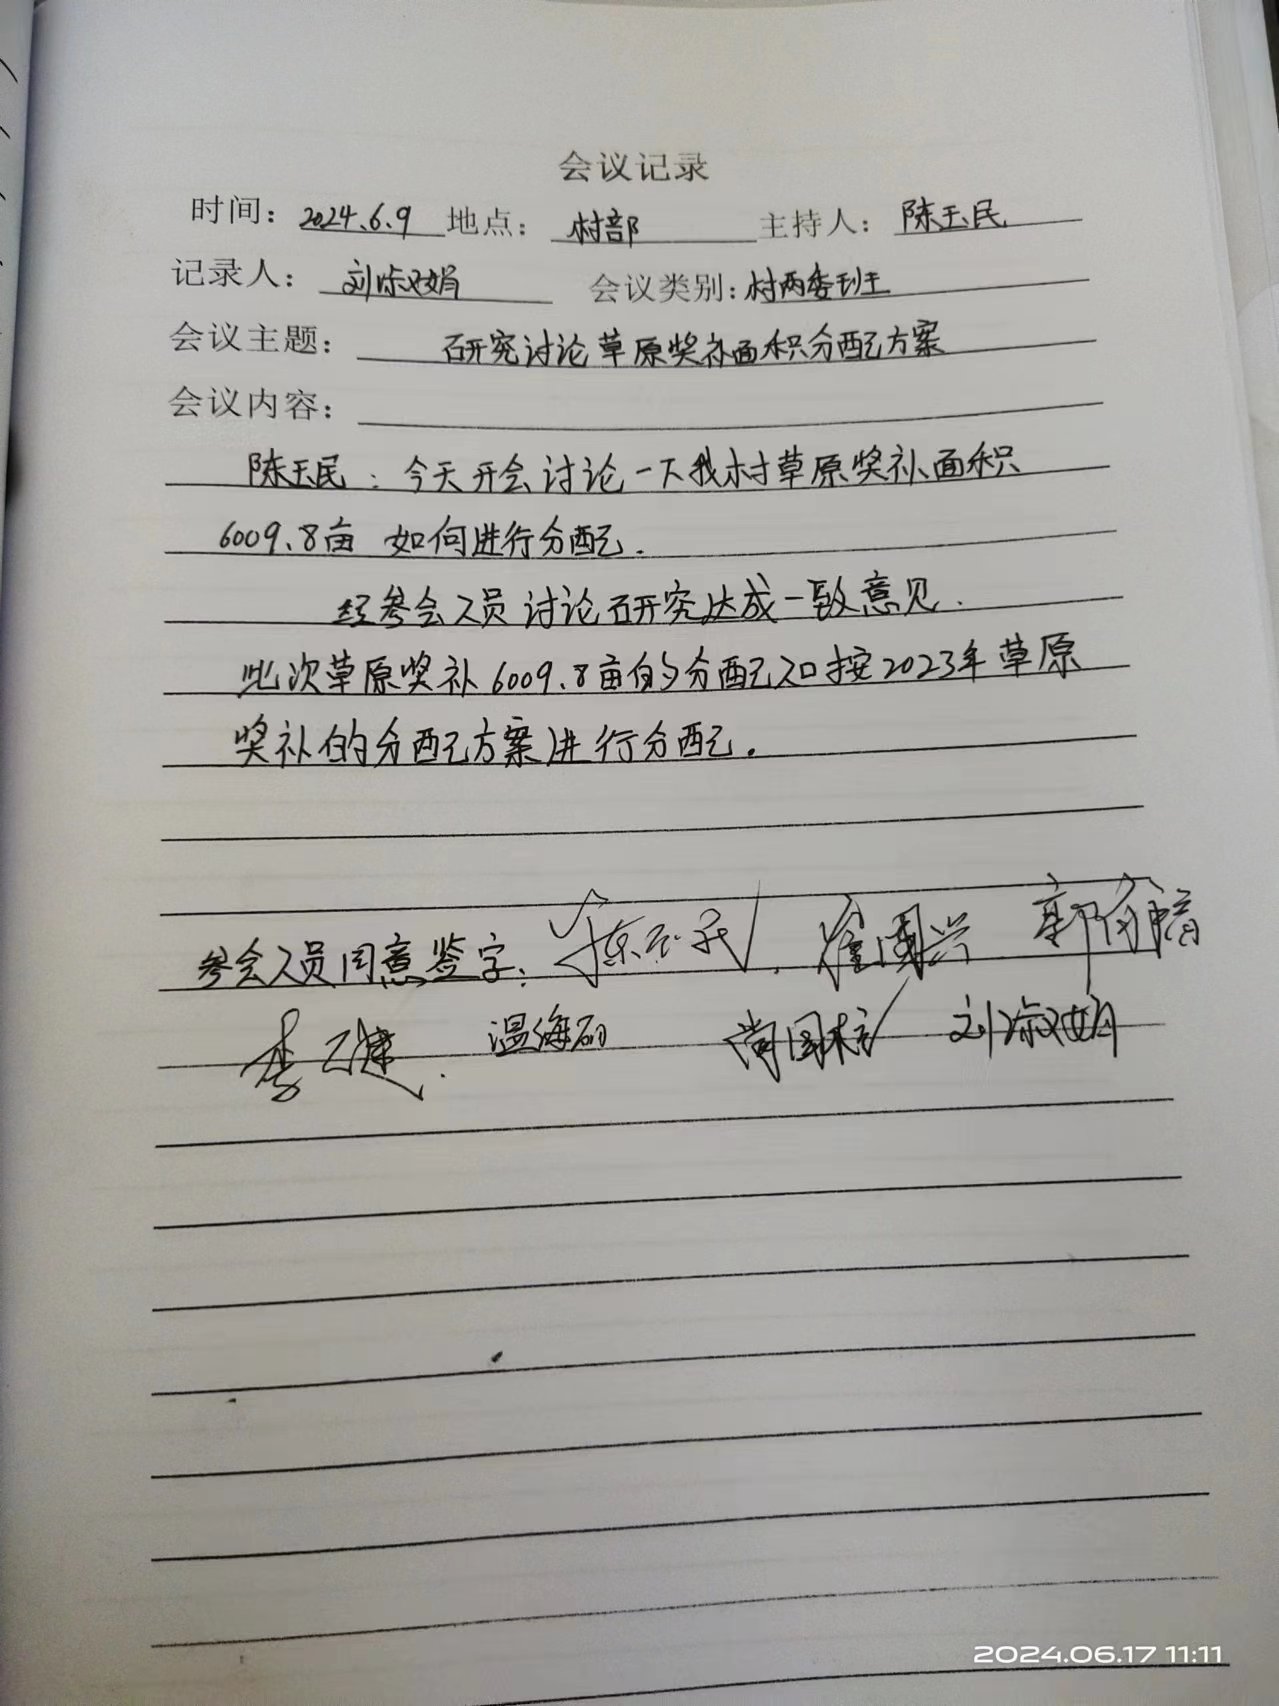 会议记录
时间: 2024.6.9 地点: 村部 主持人: 陈玉民
记录人: 刘淑娟 会议类别: 村两委班子
会议主题: 研究讨论草原奖补面积分配方案
会议内容:
陈玉民: 今天开会讨论一下我村草原奖补面积
6009.8亩 如何进行分配.
经参会人员讨论研究达成一致意见.
此次草原奖补6009.8亩的分配和按2023年草原
奖补的分配方案进行分配。
参会人员同意签字: 陈玉民 国兴 郭
李 健 温海 尚国 刘淑娟
2024.06.17 11:11